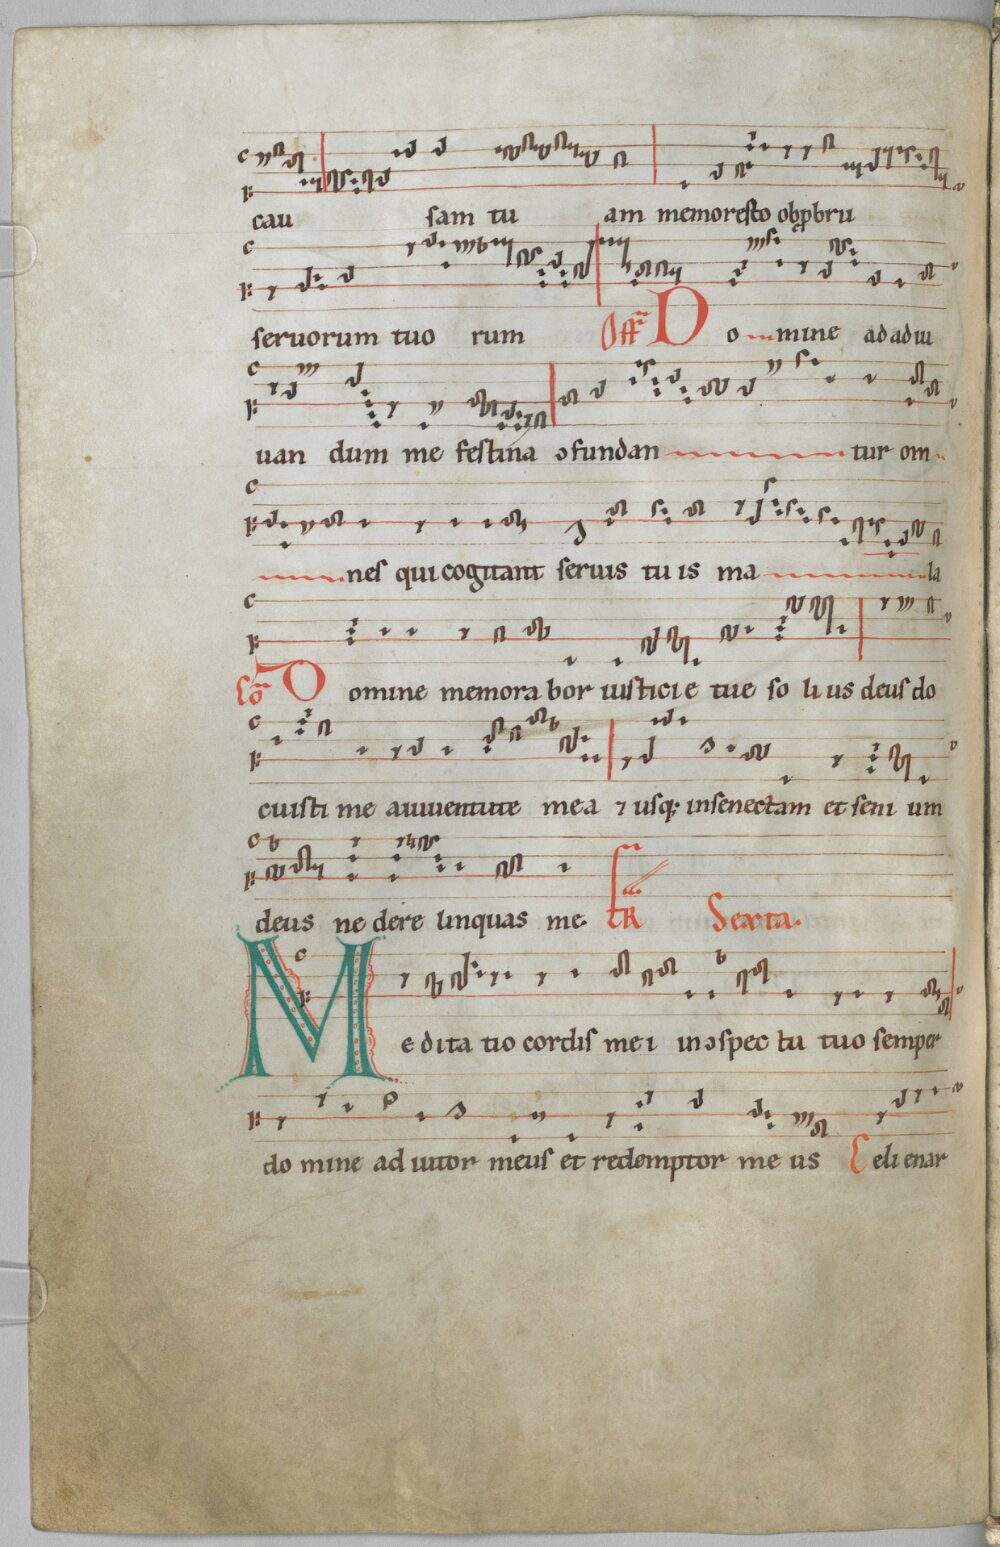 cau sam tu am memoresto obprbru
seruorum tuo rum Off D o mine ad adiu
uan dum me festina ɔfundan tur om
nes qui cogitant seruis tu is ma la
Cō D omine memora bor iusticie tue so li us deus do
cuisti me aiuuentute mea ⁊ usq; insenectam et seni um
deus ne dere linquas me. Sexta.
M e dita tio cordis mei inɔspec tu tuo semper
do mine ad iutor meus et redemptor me us Celi enar